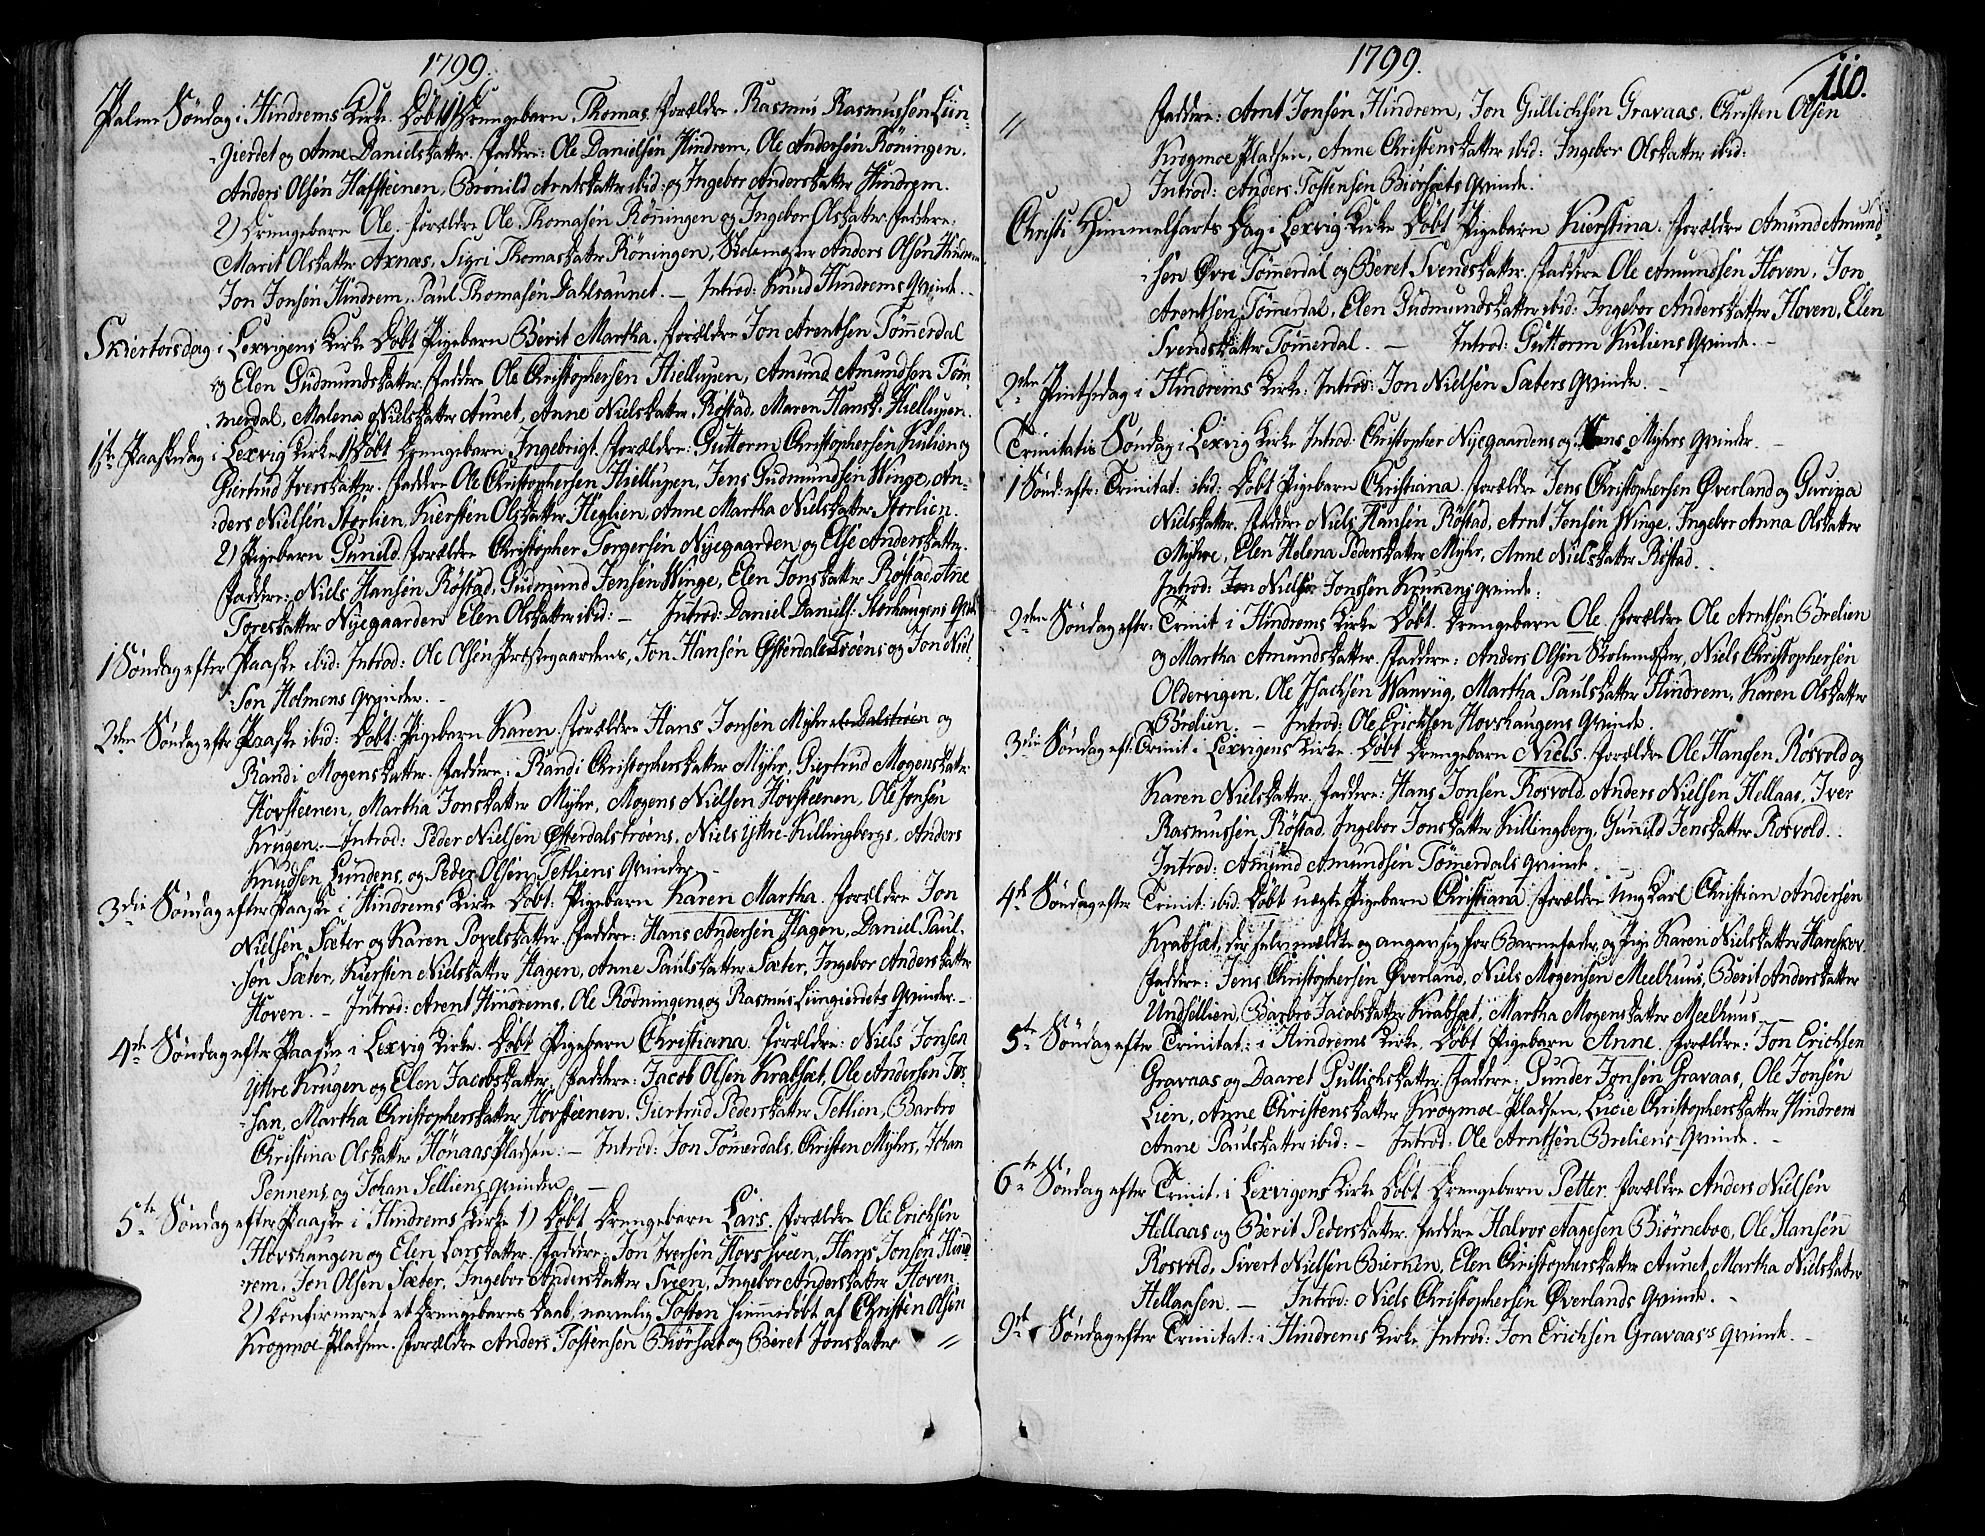 1799.
Palme Søndag i Hindrems Kirke. Døbt 1) Drengebarn Thomas. Forældre. Rasmus Rasmussen Liin-
gierdet og Anne Danielsdatter. Faddere: Ole Danielsen Hindrem, Ole Andersen Röningen,
Anders Olsen Hafsteenen, Brönild Arntsdatter ibid: og Ingebor Andersdatter Hindrem.
2) Drengebarn Ole. Forældre Ole Thomasen Röningen og Ingebor Olsdatter. Faddere:
Marit Olsdatter Axnæs, Sigri Thomasdatter Röningen, Skolemester Anders Olsen Hindrem
Jon Jonsen Hindrem, Paul Thomasen Dahlsaunet. — Introd: Knud Hindrems Qvinde.
Skiertorsdag i Lexvigens Kirke Døbt Pigebarn Berit Martha. Forældre Jon Arentsen Tömmerdal
og Elen Gudmundsdatter. Faddere Ole Christophersen Hiellupen, Amund Amundsen Töm-
merdal, Malena Nielsdatter Aunet, Anne Nielsdatter Röstad, Maren Hansd. Hiellupen.
1ste Paaskedag i Lexvig Kirke 1) Døbt Drengebarn Ingebrigt. Forældre: Guttorm Christophersen Kulien og
Giertrud Iversdatter. Faddere Ole Christophersen Hiellupen, Jens Gudmundsen Winge, An-
ders Nielsen Storlien, Kiersten Olsdatter Heglien, Anne Martha Nielsdatter Storlien.
2) Pigebarn Gunild. Forældre Christopher Torgersen Nyegaarden og Else Andersdatter.
Faddere: Niels Hansen Röstad, Gudmund Jensen Winge, Elen Jonsdatter Röstad, Anne
Toresdatter Nyegaarden Elen Olsdatter ibid: — Introd: Daniel Daniels: Storhaugens Qvinde
1 Søndag efter Paaske ibid: Introd: Ole Olsen Præstegaardens, Jon Hansen Østerdalstrøens og Jon Niel-
sen Holmens Qvinder. —
2den Søndag efter Paaske ibid: Døbt: Pigebarn Karen. Forældre Hans Jonsen Myhr og
Randi Mogensdatter. Faddere: Randi Christophersdatter Myhr, Giertrud Mogensdatter
Hovsteenen, Martha Jonsdatter Myhr, Mogens Nielsen Hovsteenen, Ole Jonsen
Krugen. — Introd: Peder Nielsen Østerdalstrøens, Niels Yttre-Killingbergs, Anders
Knudsen Lundens, og Peder Olsen Tethiens Qvinder. —
3die Søndag efter Paaske i Hindrems Kirke Døbt: Pigebarn Karen Martha. Forældre Jon
Nielsen Sæter og Karen Povelsdatter. Faddere: Hans Andersen Hagen, Daniel Paul-
sen Sæter, Kiersten Nielsdatter Hagen, Anne Paulsdatter Sæter, Ingebor Andersdatter
Hoven. — Introd: Arent Hindrems, Ole Rödningens og Rasmus Liingierdets Qvinder. —
4de Søndag efter Paaske i Lexvig Kirke. Døbt Pigebarn Christiana. Forældre: Niels Jonsen
Yttre Krugen og Elen Jacobsdatter. Faddere: Jacob Olsen Krabsæt, Ole Andersen Fos-
san, Martha Christophersdatter Hovsteenen, Giertrud Pedersdatter Tetlien, Barbro
Christina Olsdatter Hönaas Pladsen: — Introd: Jon Tömerdals, Christen Myhrs, Johan
Pennens og Johan Selliens Qvinder. —
5te Søndag efter Paaske i Hindrems Kirke 1) Døbt Drengebarn Lars. Forældre Ole Erichsen
Hovshaugen og Elen Larsdatter. Faddere: Jon Iversen Hovssveen, Hans Jonsen Hind-
rem, Jon Olsen Sæter, Ingebor Andersdatter Sveen, Ingebor Andersdatter Hoven
2) Confirmeret et Drengebarns Daab, navnlig Tosten hiemmedøbt af Christen Olsen
Krogmoe-Pladsen. Forældre Anders Tostensen Biörsæt og Beret Jonsdatter //
1799.
110.
// Faddere: Arnt Jonsen Hindrem, Jon Gullichsen Gravaas, Christen Olsen
Krogmoe Pladsen, Anne Christensdatter ibid: Ingebor Olsdatter ibid:
Introd: Anders Tostensen Biörsæts Qvinde.
Christi Himmelfarts Dag i Lexvig Kirke Døbt Pigebarn Kierstina. Forældre Amund Amund-
sen Øvre Tömmerdal og Beret Svendsdatter. Faddere Ole Amundsen Hoven, Jon
Arentsen Tömmerdal, Elen Gudmundsdatter ibid: Ingebor Andersdatter Hoven, Elen
Svendsdatter Tömerdal. — Introd: Guttorm Kuliens Qvinde. —
2den Pintsedag i Hindrems Kirke: Introd: Jon Nielsen Sæters Qvinde. —
Trinitatis Søndag i Lexvig Kirke Introd: Christopher Nyegaardens og Hans Myhrs Qvinder —
1 Sønd: eftr: Trinitat: ibid: Døbt Pigebarn Christiana. Forældre Jens Christophersen Øverland og Guripa
Nielsdatter. Faddere Niels Hansen Röstad, Arnt Jensen Winge, Ingebor Anna Olsdatter
Myhre, Elen Helena Pedersdatter Myhr, Anne Nielsdatter Röstad.
Introd: Niels Jonssen Krugens Qvinde:
2den Søndag eftr: Trinit i Hindrems Kirke Døbt. Drengebarn Ole. Forældre Ole Arntsen Brelien
og Martha Amundsdatter. Faddere: Anders Olsen Skolemester, Niels Christophersen
Oldervigen, Ole Isachsen Wanvug, Martha Paulsdatter Hindrem, Karen Olsdatter
Brelien. — Introd: Ole Erichsen Hovshaugens Qvinde
3die Søndag eft: Trinit i Lexvigens Kirke. Døbt Drengebarn Niels. Forældre Ole Hansen Rosvold og
Karen Nielsdatter. Faddere: Hans Jonsen Rosvold, Anders Nielsen Hellaas, Iver
Rasmussen Röstad, Ingebor Jonsdatter Killingberg, Gunild Jensdatter Rosvold.
Introd: Amund Amundsen Tömerdals Qvinde.
4de Søndag efter Trinit: ibid: Døbt uægte Pigebarn Christiana. Forældre Ung Karl Christian Andersen
Krabsæt, der selv meldte og angav sig for Barnefader, og Pige Karen Nielsdatter Hareskov.
Faddere: Jens Christophersen Øverland, Niels Mogensen Meelhuus, Berit Andersdatter
Undsellien, Barbro Jacobsdatter Krabsæt, Martha Mogensdatter Meelhuus.
5te Søndag efter Trinitat: i Hindrems Kirke. Døbt Pigebarn Anne. Forældre: Jon Erichsen
Gravaas og Daaret Gullichsdatter. Faddere: Gunder Jonsen Gravaas, Ole Jonsen
Lien, Anne Christensdatter Krogmoe-Pladsen, Lucie Christophersdatter Hindrem
Anne Paulsdatter ibid: — Introd: Ole Arntsen Breliens Qvinde. —
6te Søndag efter Trinit. i Lexvigens Kirke Døbt Drengebarn Petter. Forældre Anders Nielsen
Hellaas og Berit Pedersdatter. Faddere Halvor Aagesen Biörneboe, Ole Hansen
Rosvold, Sivert Nielsen Bierken, Elen Christophersdatter Aunet, Martha Nielsdatter
Hellaasen. — Introd: Niels Christophersen Øverlands Qvinde. —
9de Søndag efter Trinitat: i Hindrems Kirke. Introd: Jon Erichsen Gravaas's Qvinde. —